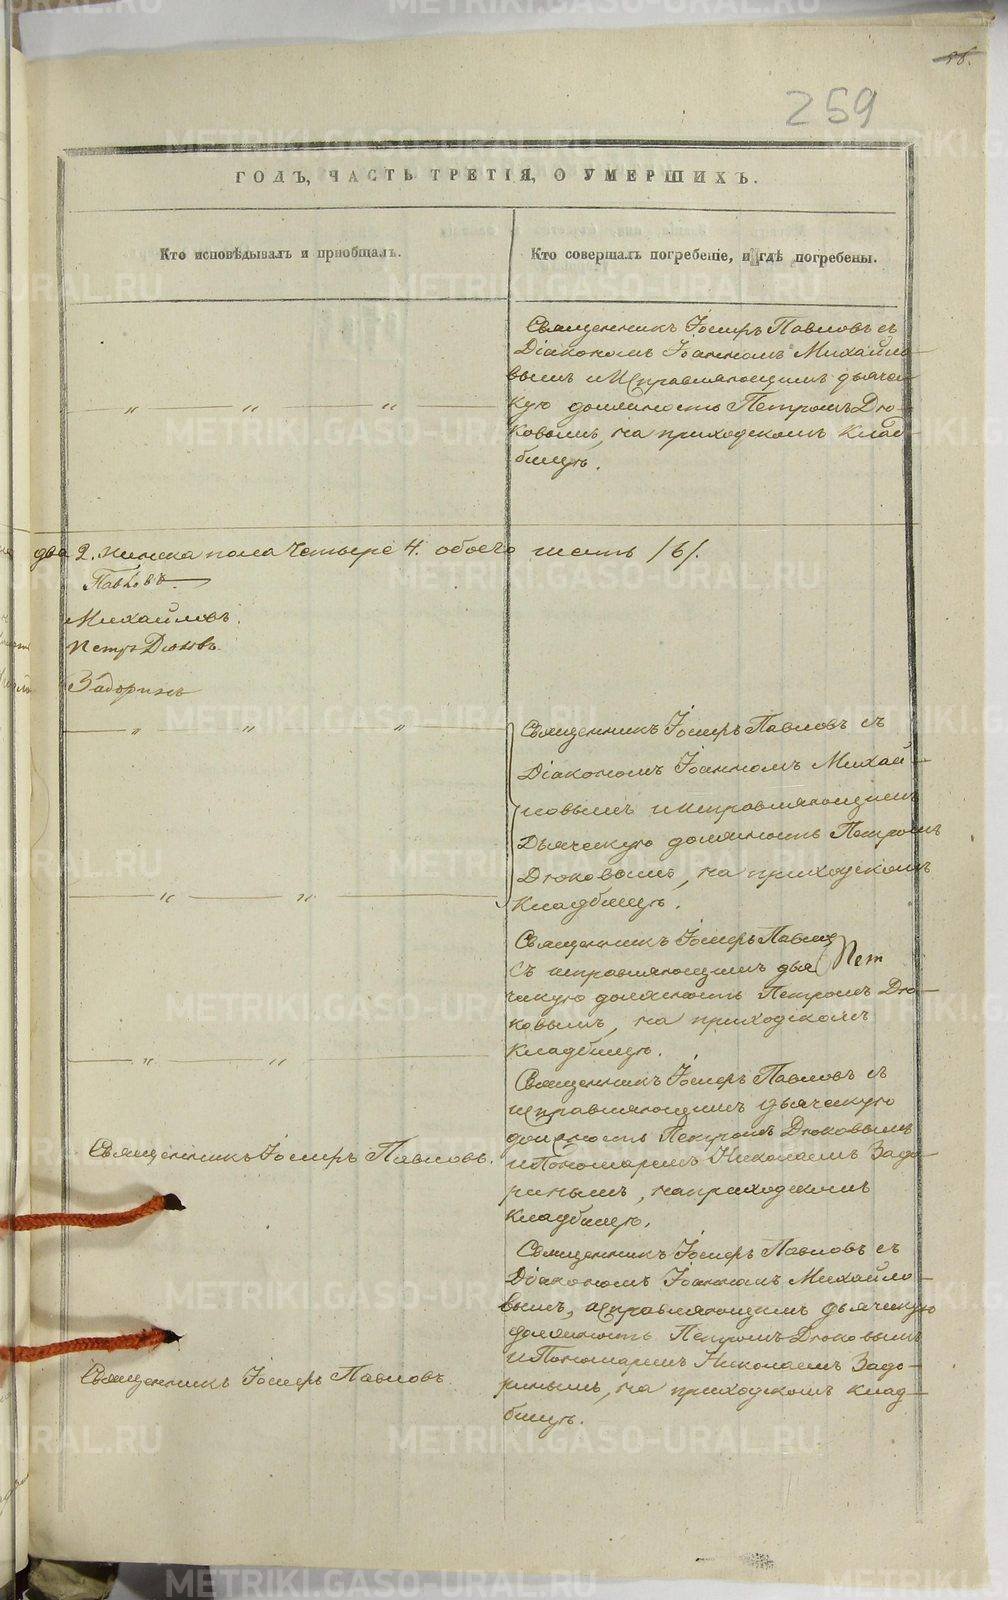 88.
259
ГОДЪ, ЧАСТЬ ТРЕТІЯ, О УМЕРШИХЪ.
Кто исповѣдывалъ и пріобщалъ.
Кто совершалъ погребеніе, и гдѣ погребены.
Священникъ Іосифъ Павловъ съ
Діакономъ Іоанномъ Михайло-
вымъ и Исправляющимъ дьячес-
кую должность Петромъ Дю-
ковымъ, на приходскомъ клад-
бищѣ.
два 2. женска пола четыре 4. обоего шесть /6/.
Павловъ.
Михайловъ.
Петръ Дюковъ.
Задоринъ
Священникъ Іосифъ Павловъ съ
Діакономъ Іоанномъ Михай-
ловымъ и исправляющимъ
Дьяческую должность Петромъ
Дюковымъ, на приходскомъ
Кладбищѣ.
Священникъ Іосифъ Павлов
Съ исправляющимъ дья Пет
ческую должность Петромъ Дю-
ковымъ, на приходскомъ
Кладбищѣ.
Священникъ Іосифъ Павловъ.
Священникъ Іосифъ Павловъ съ
исправляющимъ дьяческую
должность Петромъ Дюковымъ
и Пономаремъ Николаемъ Задо-
ринымъ, на приходскомъ
Кладбищѣ.
Священникъ Іосифъ Павловъ.
Священникъ Іосифъ Павловъ съ
Діакономъ Іоанномъ Михайло-
вымъ, исправляющимъ дьяческую
должность Петромъ Дюковымъ
и Пономаремъ Николаемъ Задо-
ринымъ, на приходскомъ клад-
бищѣ.
METRIKI.GASO-URAL.RU